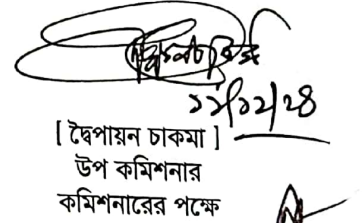 ১২/১২/২৪
[ দ্বৈপায়ন চাকমা ]
উপ কমিশনার
কমিশনারের পক্ষে